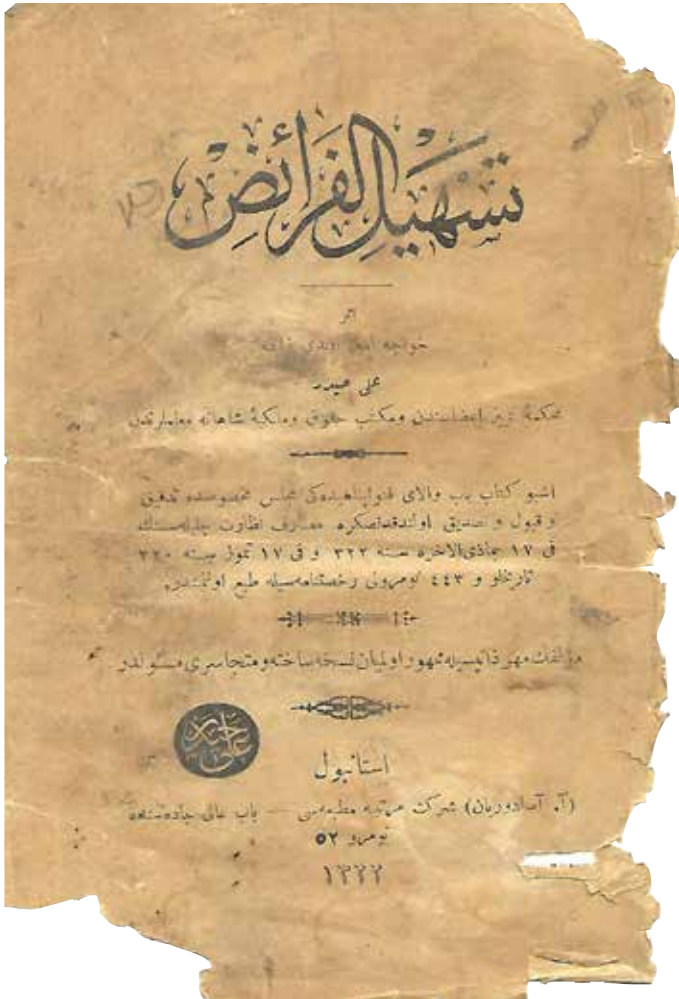 تسهيل الفرائض
اثر
خواجه امين افندى زاده
على حيدر
محكمهٔ تميز اعضاسندن ومكتب حقوق وملكيهٔ شاهانه معلملرندن
اشبو كتاب باب والاى فتواپناهيده كى مجلس مخصوصده تدقيق
و قبول و تصديق اولندقدنصكره معارف نظارت جليله سنك
فى ١٧ جماذى الاخره سنه ٣٢٢ و فى ١٧ تموز سنه ٣٢٠
تاريخلو و ٤٤٣ نومرولى رخصتنامه سيله طبع اولنمشدر.
مؤلفك مهر ذاتيسيله ممهور اولميان نسخه ساخته ومتجاسرى مسئولدر
على حيدر
استانبول
(آ. آصادوريان) شركت مرتبيه مطبعه سى — باب عالى جاده سنده
نومرو ٥٢
١٣٢٢